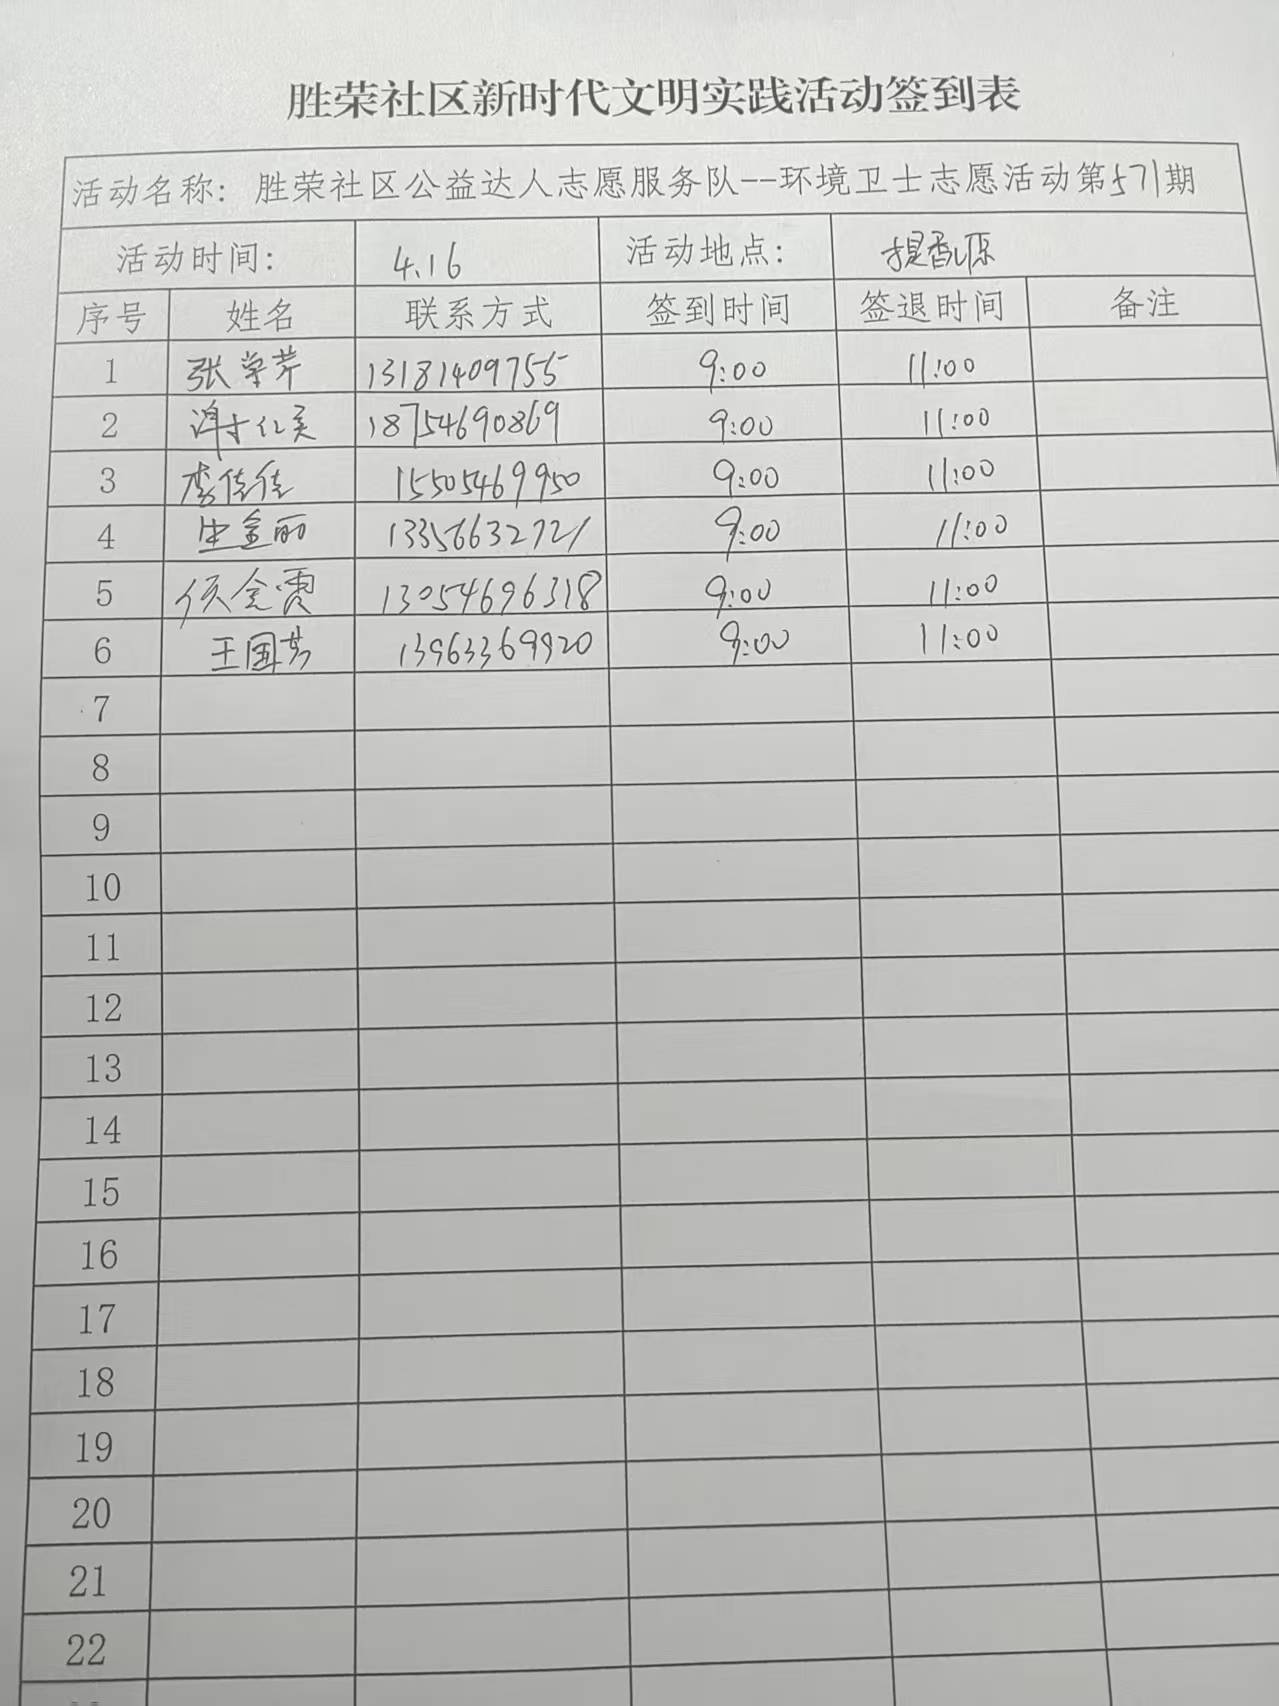 胜荣社区新时代文明实践活动签到表
活动名称: 胜荣社区公益达人志愿服务队--环境卫士志愿活动第571期
活动时间: 4.16 活动地点: 提香
序号 姓名 联系方式 签到时间 签退时间 备注
1 张学芹 13181409755 9:00 11:00
2 18754690869 9:00 11:00
3 李佳佳 15505469950 9:00 11:00
4 金丽 13356632721 9:00 11:00
5 侯金霞 13054696318 9:00 11:00
6 王国芳 13963369920 9:00 11:00
7
8
9
10
11
12
13
14
15
16
17
18
19
20
21
22